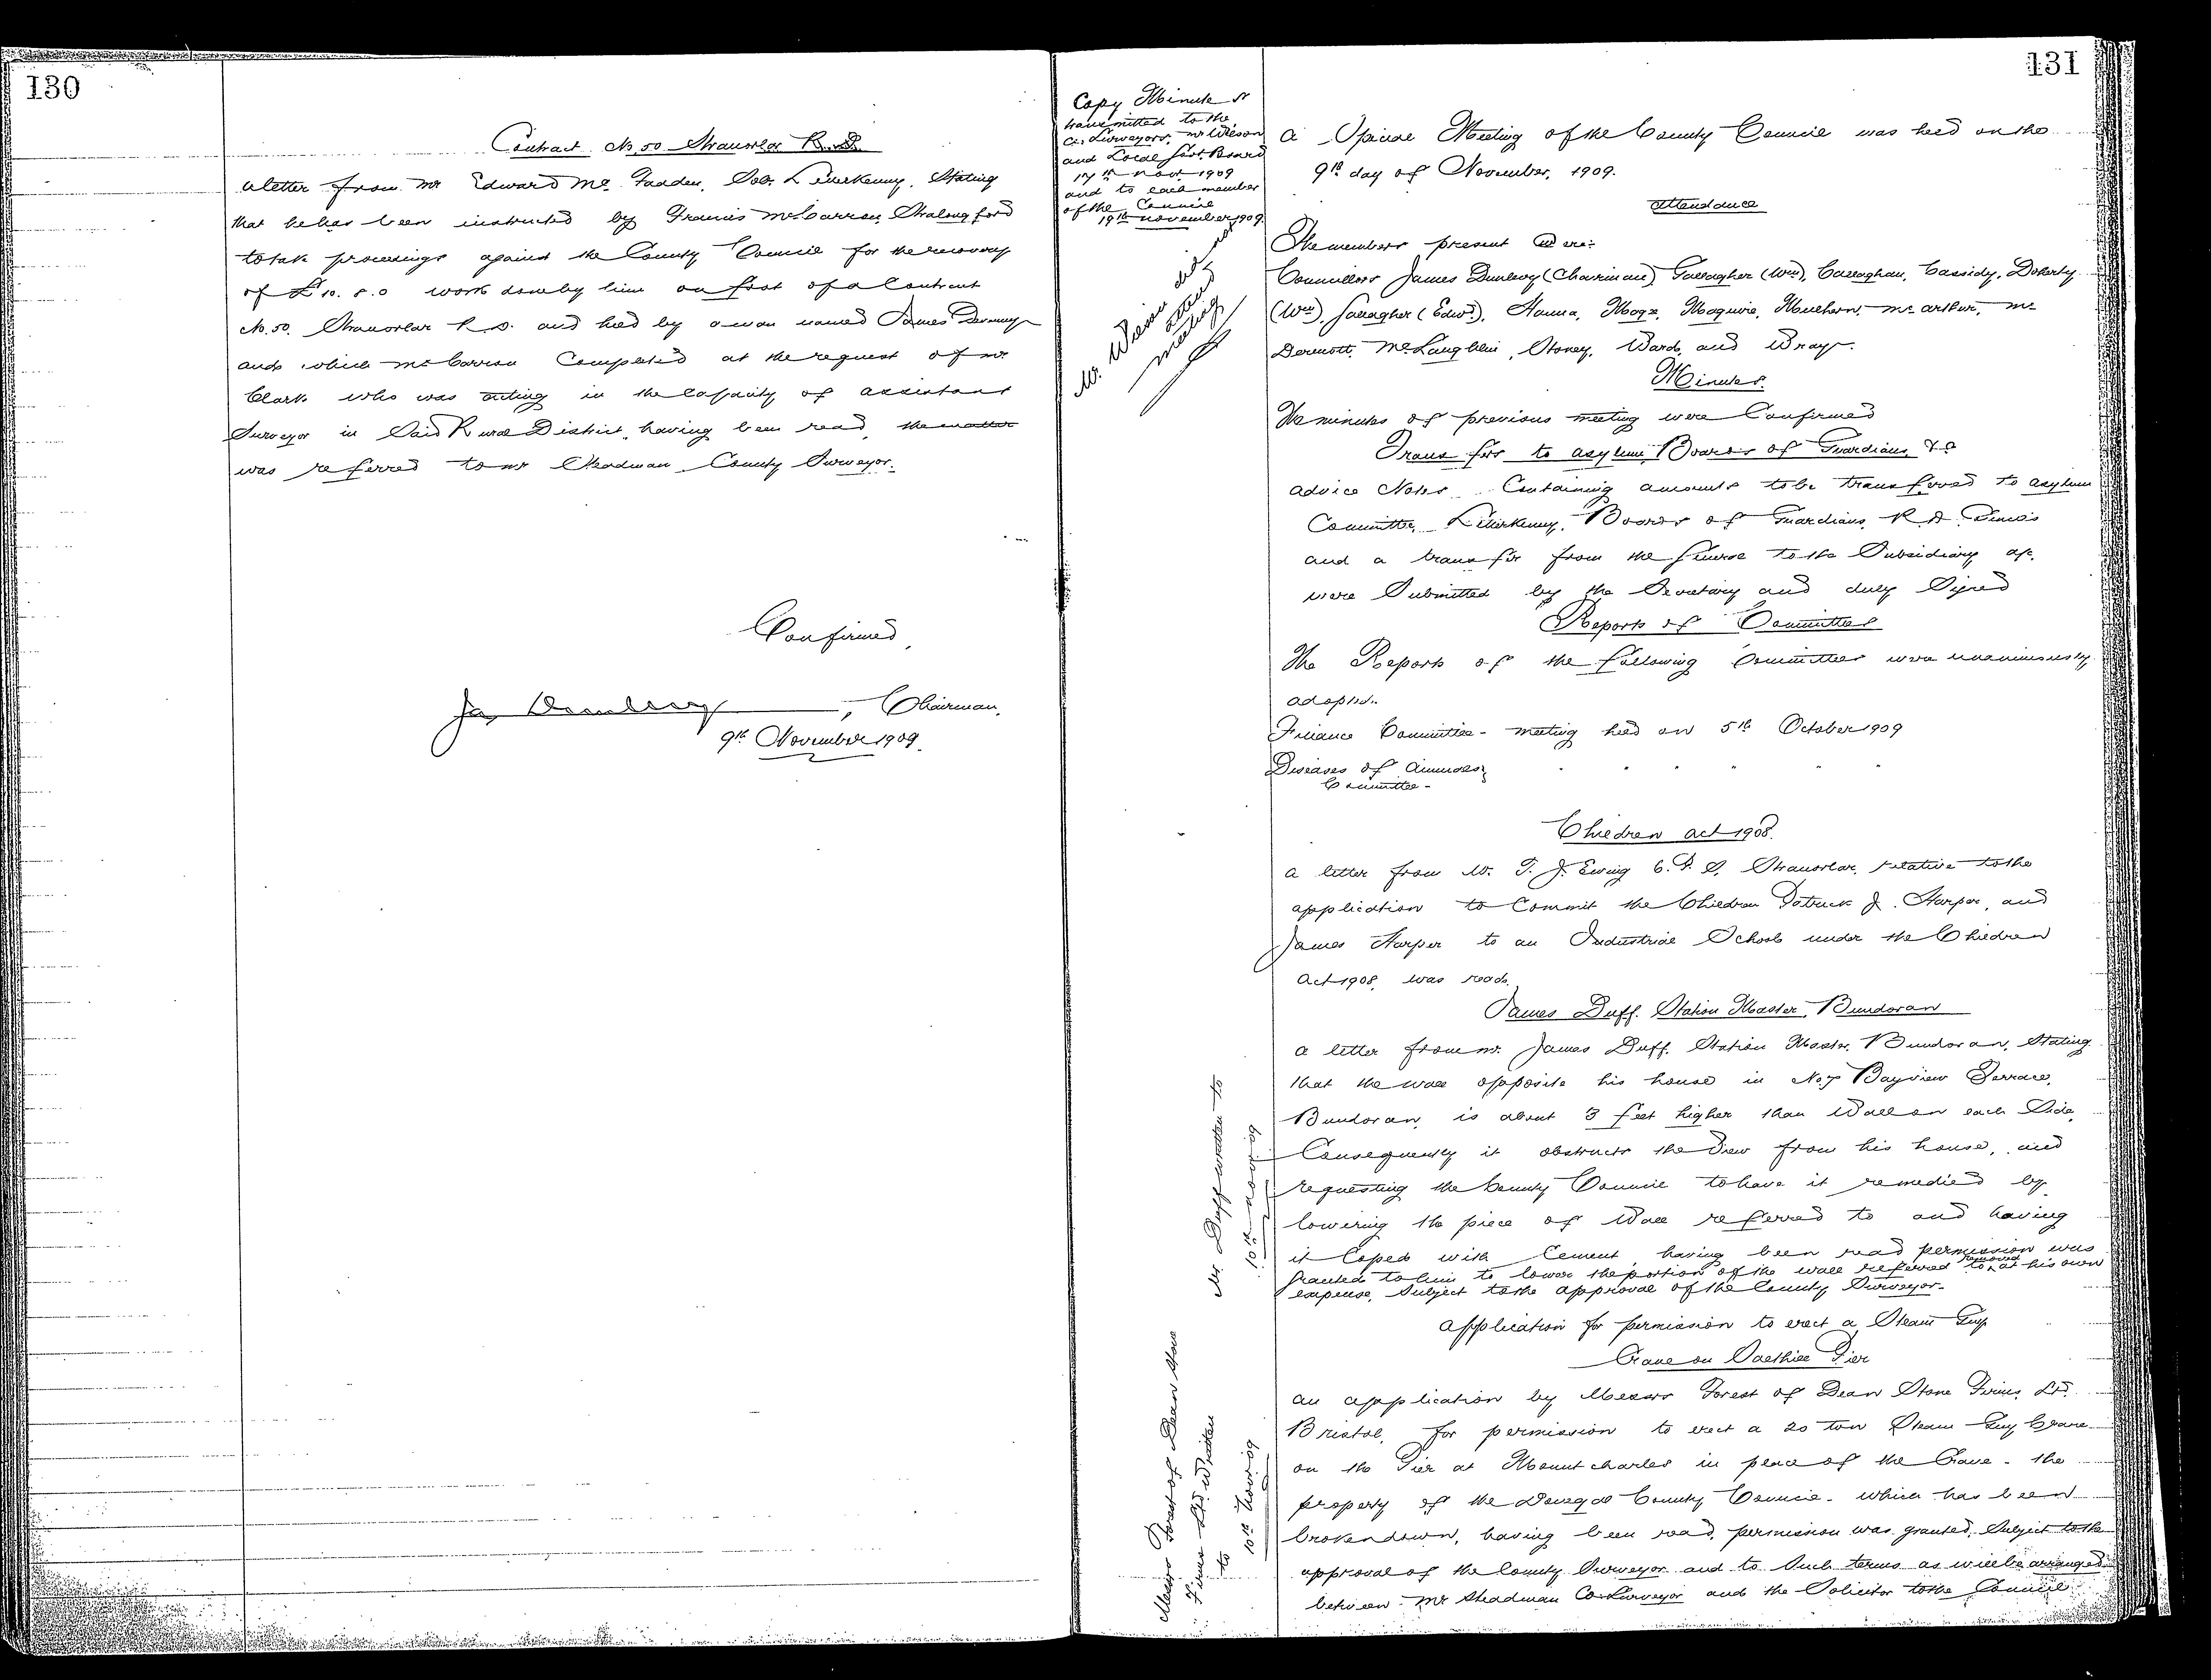 130
Contract No. 50 Stranorlar R.D.
a letter from Mr Edward Mc Fadden, Solr. Letterkenny, Stating
that he has been instructed by Francis McCarron
to take proceedings against the County Council for the recovery
of £10. 8. 0 work done by him on foot of a Contract
No. 50. Stranorlar R.D. and held by a man named James
and which McCarron Completed at the request of Mr
Clark who was acting in the Capacity of assistant
Surveyor in Said Rural District, having been read, the matter
was referred to Mr Steadman County Surveyor.
Confirmed,
Jas Dunlevy, Chairman.
9th November 1909.
131
Copy Minute
transmitted to the
Co. Surveyors, Mr Wilson
and Local Govt. Board
17th Novr 1909
and to each member
of the Council
19th November 1909.
Mr. Wilson did not
attend
meeting
A Special Meeting of the County Council was held on the
9th day of November, 1909.
Attendance
The members present were:
Councillors James Dunlevy (Chairman), Gallagher (Wm), Callaghan, Cassidy, Doherty
(Wm), Gallagher (Edwd), Hanna, Hogg, Maguire, Mulhern, McArthur, Mc
Dermott, McLaughlin, Stoney, Ward, and Wray.
Minutes.
The minutes of previous meeting were Confirmed
Transfers to asylum Boards of Guardians &c
advice Notes Containing amounts to be transferred to asylum
Committee, Letterkenny, Boards of Guardians, R.D. Councils
and a transfer from the General to the Subsidiary a/c.
were Submitted by the Secretary and duly Signed
Reports of Committees
The Reports of the following Committees were unanimously
adopted.
Finance Committee - meeting held on 5th October 1909
Diseases of Animals } " " " " " "
Committee -
Children act 1908.
a letter from Mr. T. J. Ewing C.P.S. Stranorlar, relative to the
application to Commit the Children Patrick J. Harper, and
James Harper to an Industrial School under the Children
Act 1908, was read.
James Duff. Station Master, Bundoran
Mr. Duff written to
10th Nov. 09
a letter from Mr. James Duff. Station Master, Bundoran, Stating
that the wall opposite his house in No. 7 Bayview Terrace,
Bundoran, is about 3 feet higher than Wall on each Side,
Consequently it obstructs the View from his house, and
requesting the County Council to have it remedied by
lowering the piece of Wall referred to and having
it Coped with Cement having been read permission was
granted to him to lower the portion of the wall referred to at his own
expense, Subject to the approval of the County Surveyor.
Application for permission to erect a Steam Guy
Crane on Salthill Pier
Messrs Forest of Dean Stone
Firms Ltd. Written
to 10th Nov. 09
an application by Messrs Forest of Dean Stone Firms, Ltd.
Bristol, for permission to erect a 20 ton Steam Guy Crane
on the Pier at Mountcharles in place of the Crane - the
property of the Donegal County Council - which has been
broken down, having been read, permission was granted, Subject to the
approval of the County Surveyor and to Such terms as will be arranged
between Mr Steadman Co. Surveyor and the Solicitor to the Council